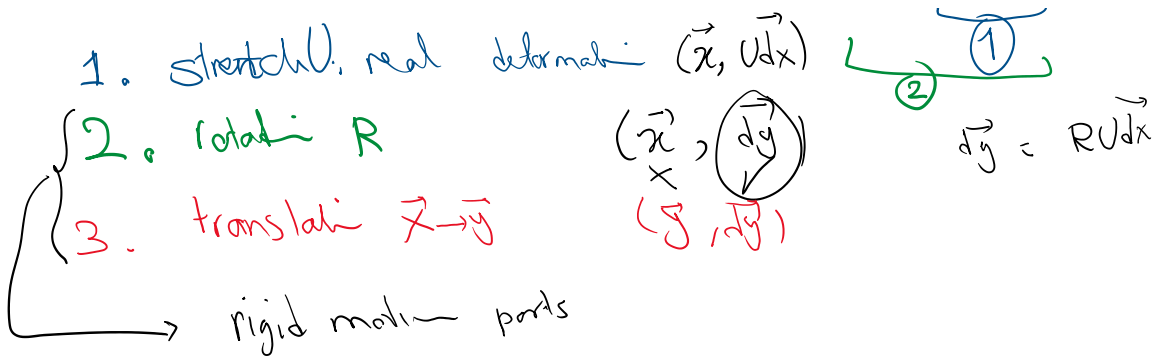 1. stretch U, real deformation (x⃗, Udx⃗) ①
②
2. rotation R (x⃗, dy⃗) dy⃗ = RUdx⃗
x
3. translation x⃗→y⃗ (y⃗, dy⃗)
rigid motion parts